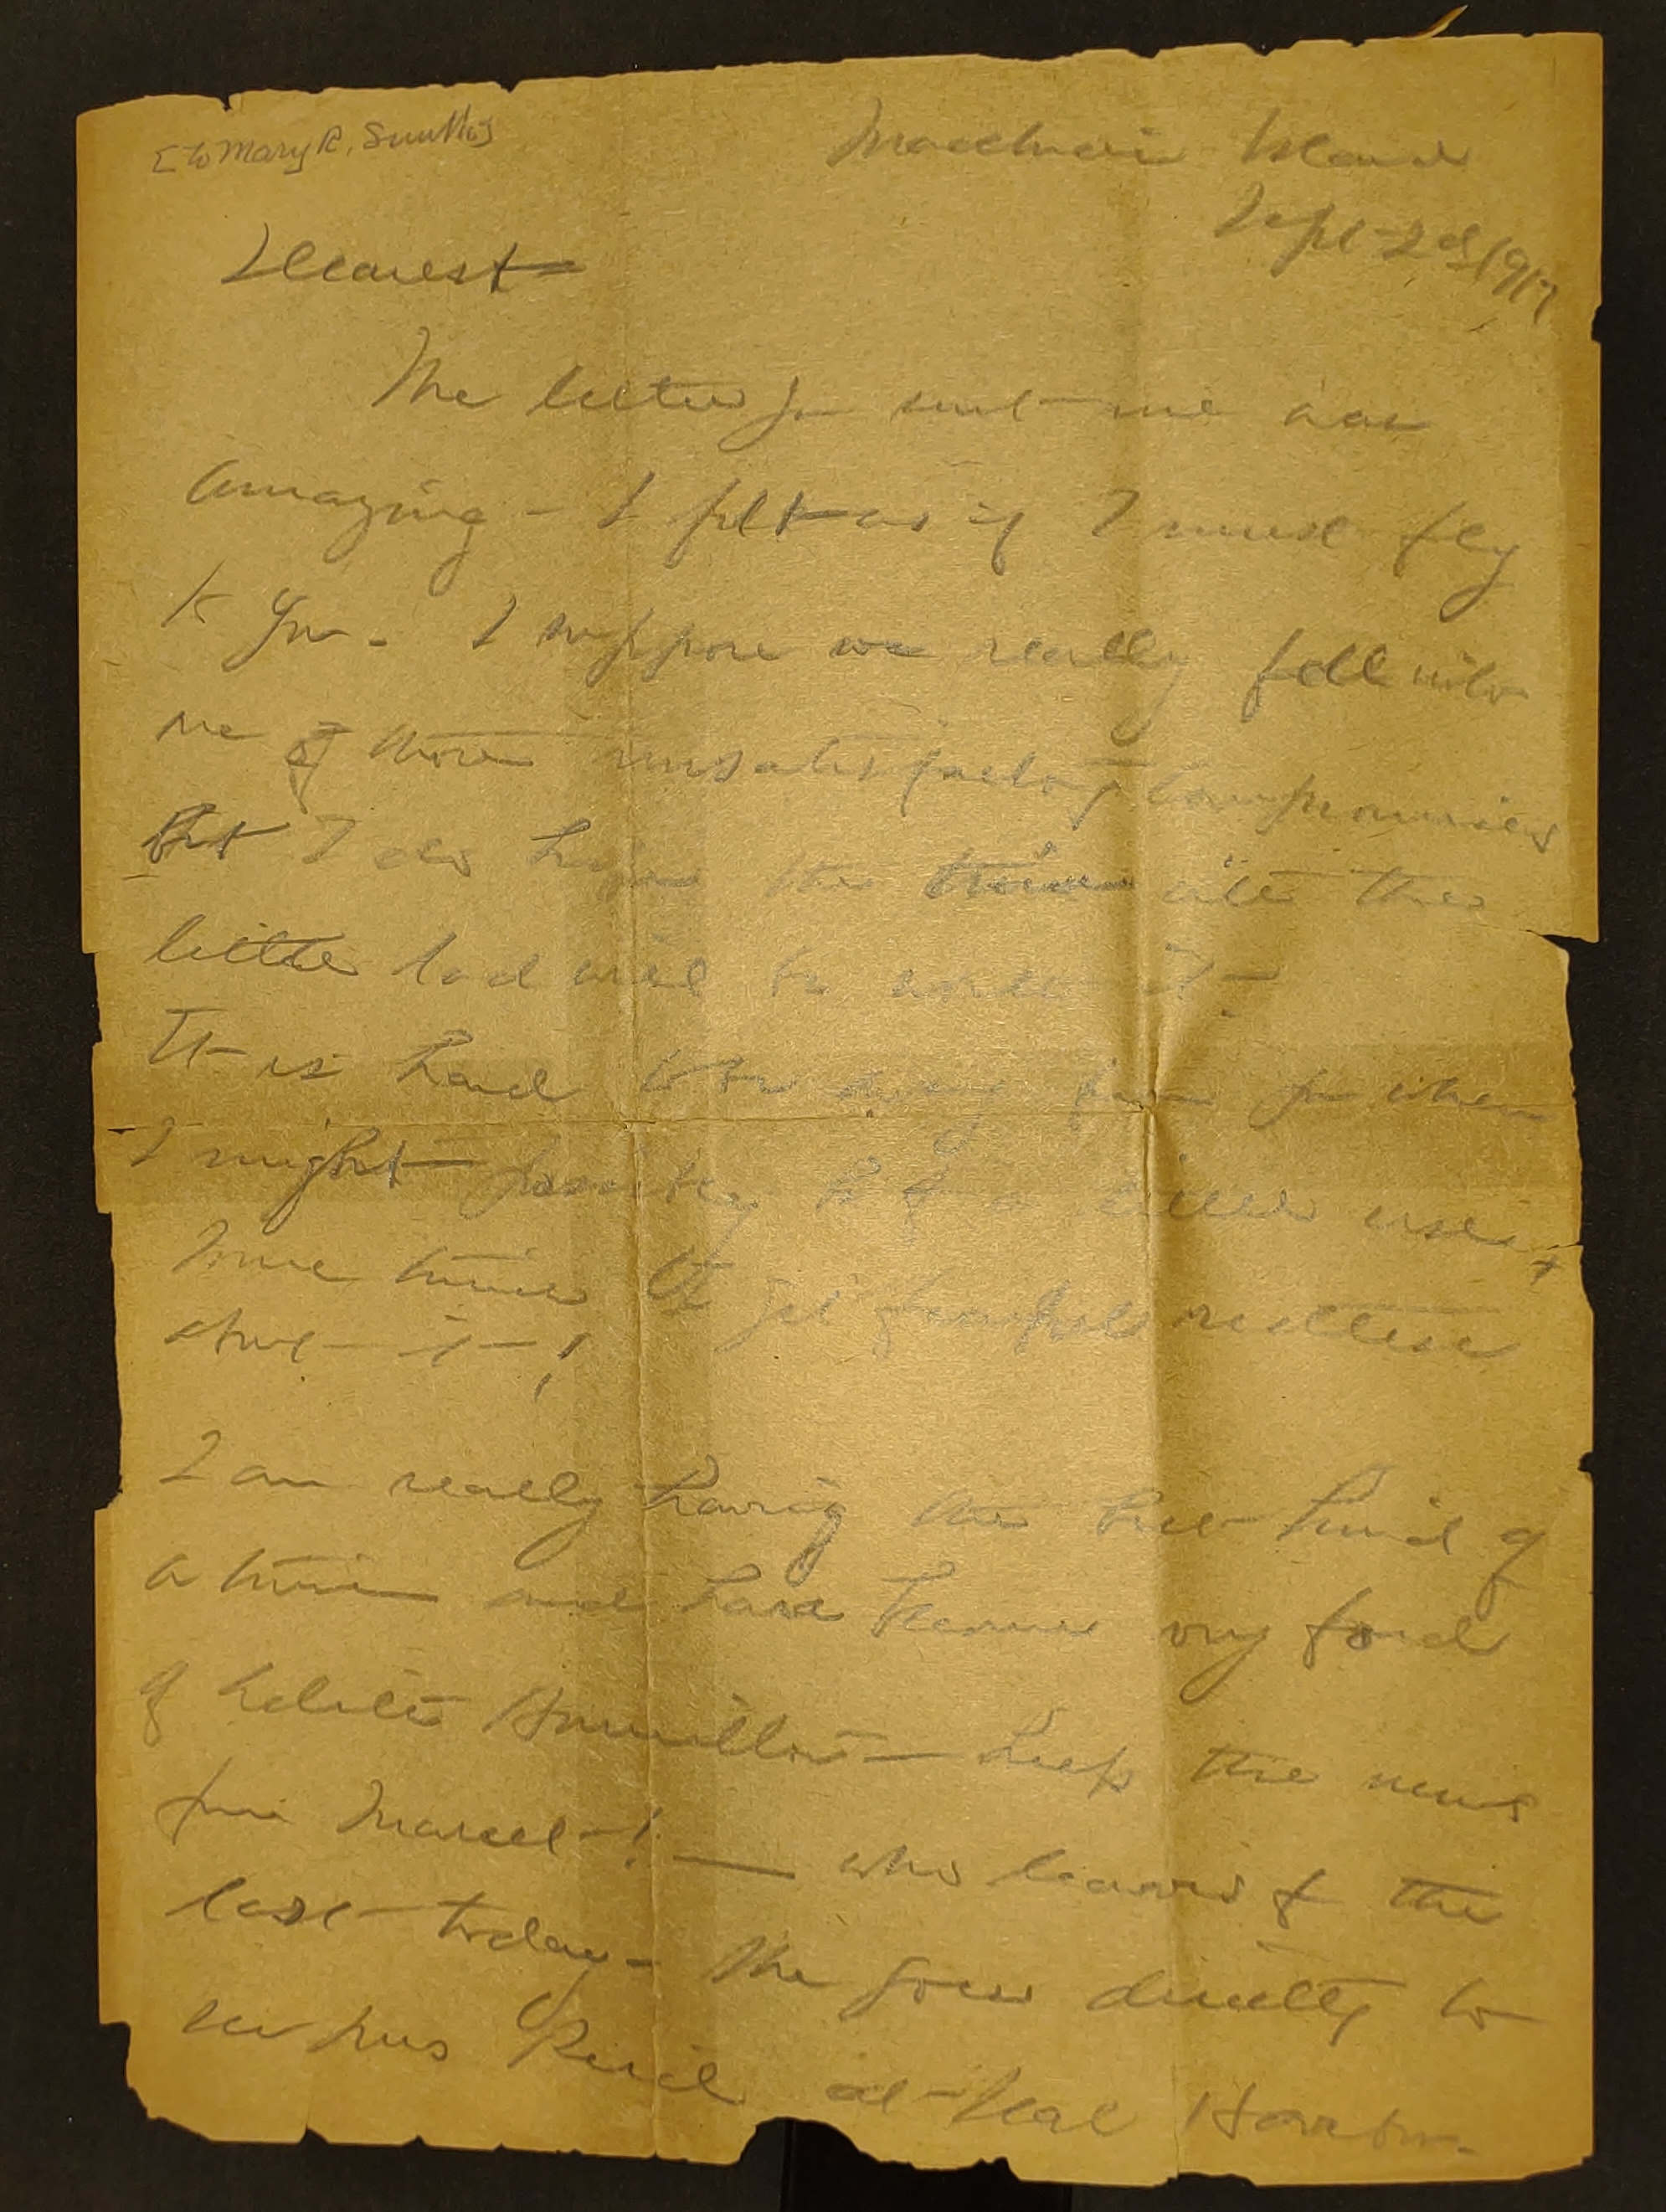 [to Mary R. Smith]
Mackinac Island
Sept 2d 1917
Dearest
The letter you sent me was
amazing - I felt as if I must fly
to you. I suppose we really fell into
one of those unsatisfactory compromises
But I do hope the time with the
little lad will be worth it -
It is hard to be away from you when
I might possibly be of a little use, &
some times I get fearfully restless
about it - !
I am really having the best kind of
a time and have become very fond
of Hamilton — keep the news
from Marcet - ! — who learns of the
last today - She goes directly to
see Mrs at Seal Harbor.